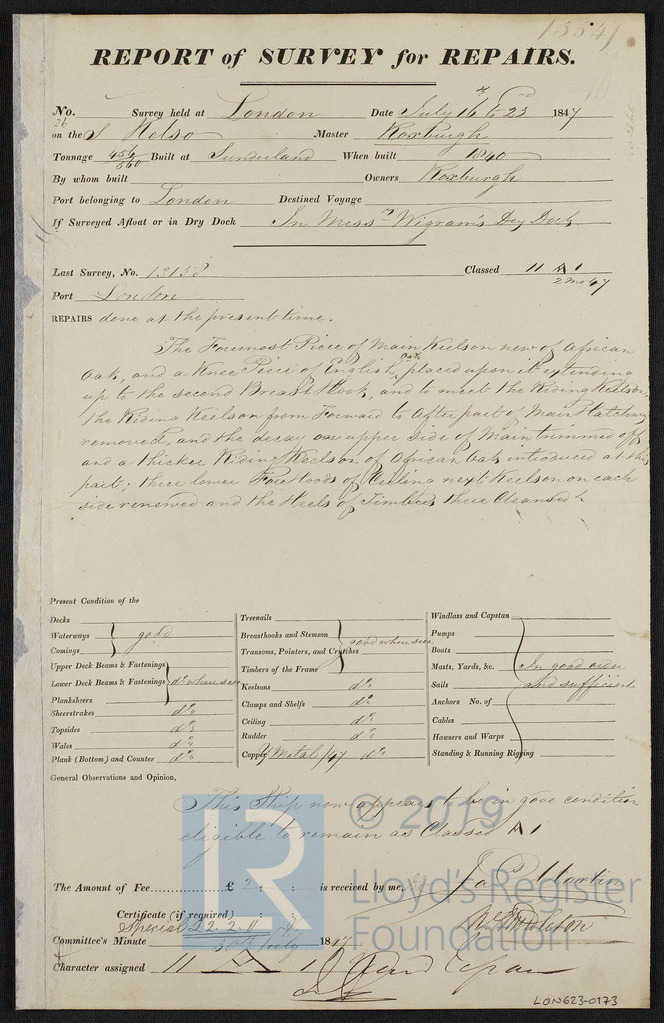 13541
REPORT of SURVEY for REPAIRS.
No. Survey held at London Date July 16th & 23rd 1847
26
on the S Kelso Master Roxburgh
Tonnage 456/560 Built at Sunderland When built 1840
By whom built Owners Roxburgh
Port belonging to London Destined Voyage
If Surveyed Afloat or in Dry Dock In Messrs Wigram's Dry Dock
Last Survey, No. 13138 Classed 11 A 1
Port London 2 Mo 47
REPAIRS done at the present time.
The Foremost Piece of Main Keelson new of African
Oak, and a Knee Piece of English Oak, placed upon it extending
up to the second Breast Hook, and to meet the Riding Keelson,
the Riding Keelson from Forward to After part of Main Hatchway
removed, and the decay on upper side of Main trimmed off
and a thicker Riding Keelson of African Oak introduced at this
part; three lower Fore Hoods of Ceiling next Keelson on each
side renewed and the Heels of Timbers there Cleansed
Present Condition of the
Decks
Waterways good
Comings
Upper Deck Beams & Fastenings
Lower Deck Beams & Fastenings do where seen
Planksheers
Sheerstrakes do
Topsides do
Wales do
Plank (Bottom) and Counter do
Treenails
Breasthooks and Stemson good where seen
Transoms, Pointers, and Crutches
Timbers of the Frame
Keelsons do
Clamps and Shelfs do
Ceiling do
Rudder do
Copper Y Metal /47 do
Windlass and Capstan
Pumps
Boats
Masts, Yards, &c. In good order
Sails and sufficient
Anchors No. of
Cables
Hawsers and Warps
Standing & Running Rigging
General Observations and Opinion,
This Ship now appears to be in good condition
eligible to remain as Classed A 1
© 2019
LR
Lloyd's Register
Foundation
The Amount of Fee............£ 2 : : is received by me, Jas Martin
Certificate (if required) : :
Special £2.2.0
Committee's Minute 30th July 1847
Character assigned 11 A 1
LON623-0173